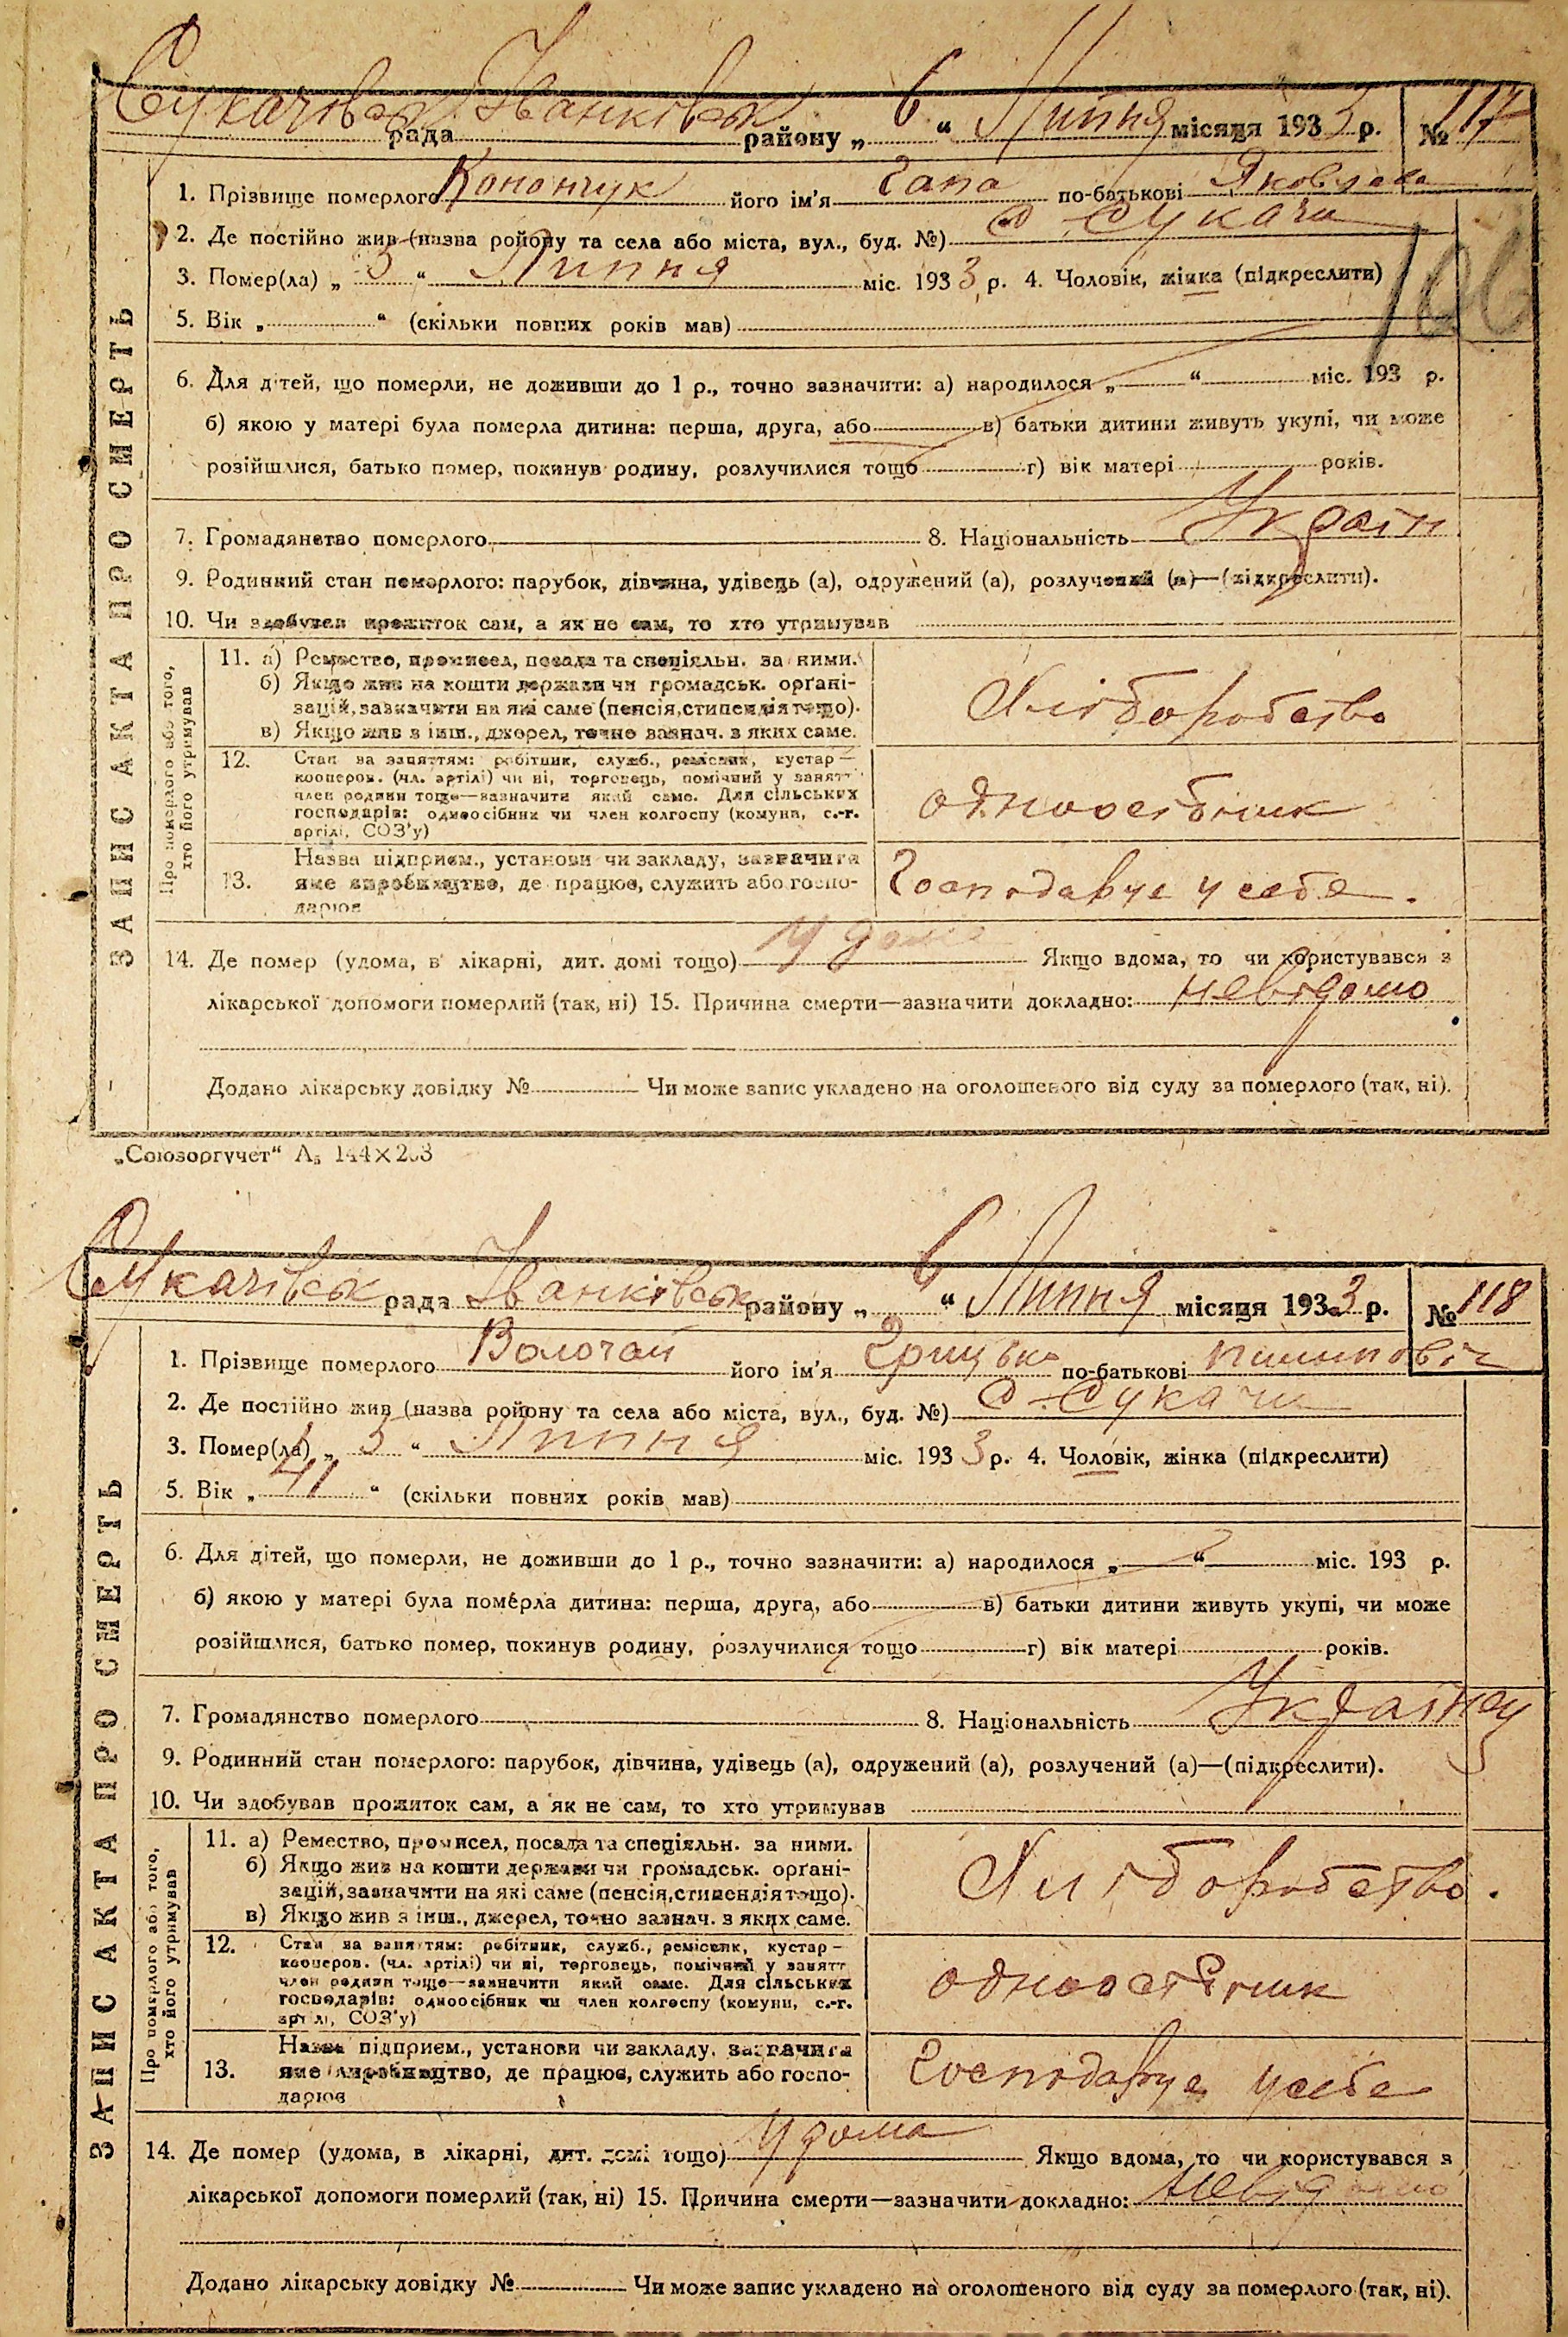 Сукачівськ рада Іванківськ району „ 6 “ Липня місяця 1933 р. № 117
1. Прізвище померлого Конончук його ім'я Гапа по-батькові Яковлева
2. Де постійно жив (назва ройону та села або міста, вул., буд. №) с. Сукачи
3. Помер(ла) „ 3 “ Липня міс. 1933 р. 4. Чоловік, жінка (підкреслити)
106
5. Вік „ “ (скільки повних років мав)
6. Для дітей, що померли, не доживши до 1 р., точно зазначити: а) народилося „ “ міс. 193 р.
б) якою у матері була померла дитина: перша, друга, або в) батьки дитини живуть укупі, чи може
розійшлися, батько помер, покинув родину, розлучилися тощо г) вік матері років.
7. Громадянство померлого 8. Національність Україн
9. Родинний стан померлого: парубок, дівчина, удівець (а), одружений (а), розлучений (а)—(підкреслити).
10. Чи здобував прожиток сам, а як не сам, то хто утримував
11. а) Ремество, промисел, посада та спеціяльн. за ними.
б) Якщо жив на кошти держави чи громадськ. орґані-
зацій, зазначити на які саме (пенсія, стипендія тощо).
в) Якщо жив з інш., джерел, точно зазнач. з яких саме.
Хліборобство
12. Стан за заняттям: робітник, служб., ремісник, кустар—
кооперов. (чл. артілі) чи ні, торговець, помічний у занятт
член родини тощо—зазначити який саме. Для сільських
господарів: одноосібник чи член колгоспу (комуни, с.-г.
артілі, СОЗ'у)
одноосібник
13. Назва підприєм., установи чи закладу, зазначити
яке виробництво, де працює, служить або госпо-
дарює
Господарує у себе.
14. Де помер (удома, в лікарні, дит. домі тощо) У дома Якщо вдома, то чи користувався з
лікарської допомоги померлий (так, ні) 15. Причина смерти—зазначити докладно: невідомо
Додано лікарську довідку № Чи може запис укладено на оголошеного від суду за померлого (так, ні).
ЗАПИС АКТА ПРО СМЕРТЬ
Про померлого або того,
хто його утримував
„Союзоргучет“ А₅ 144×203
Сукачівськ рада Іванківськ району „ 6 “ Липня місяця 1933 р. № 118
1. Прізвище померлого Волочай його ім'я Грицько по-батькові Пилипович
2. Де постійно жив (назва ройону та села або міста, вул., буд. №) с. Сукачи
3. Помер(ла) „ 3 “ Липня міс. 1933 р. 4. Чоловік, жінка (підкреслити)
5. Вік „ 41 “ (скільки повних років мав)
6. Для дітей, що померли, не доживши до 1 р., точно зазначити: а) народилося „ “ міс. 193 р.
б) якою у матері була померла дитина: перша, друга, або в) батьки дитини живуть укупі, чи може
розійшлися, батько помер, покинув родину, розлучилися тощо г) вік матері років.
7. Громадянство померлого 8. Національність Українец
9. Родинний стан померлого: парубок, дівчина, удівець (а), одружений (а), розлучений (а)—(підкреслити).
10. Чи здобував прожиток сам, а як не сам, то хто утримував
11. а) Ремество, промисел, посада та спеціяльн. за ними.
б) Якщо жив на кошти держави чи громадськ. орґані-
зацій, зазначити на які саме (пенсія, стипендія тощо).
в) Якщо жив з інш., джерел, точно зазнач. з яких саме.
Хліборобство.
12. Стан за заняттям: робітник, служб., ремісник, кустар—
кооперов. (чл. артілі) чи ні, торговець, помічний у занятт
член родини тощо—зазначити який саме. Для сільських
господарів: одноосібник чи член колгоспу (комуни, с.-г.
артілі, СОЗ'у)
одноосібник
13. Назва підприєм., установи чи закладу, зазначити
яке виробництво, де працює, служить або госпо-
дарює
Господарує у себе
14. Де помер (удома, в лікарні, дит. домі тощо) У дома Якщо вдома, то чи користувався з
лікарської допомоги померлий (так, ні) 15. Причина смерти—зазначити докладно: Невідомо
Додано лікарську довідку № Чи може запис укладено на оголошеного від суду за померлого (так, ні).
ЗАПИС АКТА ПРО СМЕРТЬ
Про померлого або того,
хто його утримував